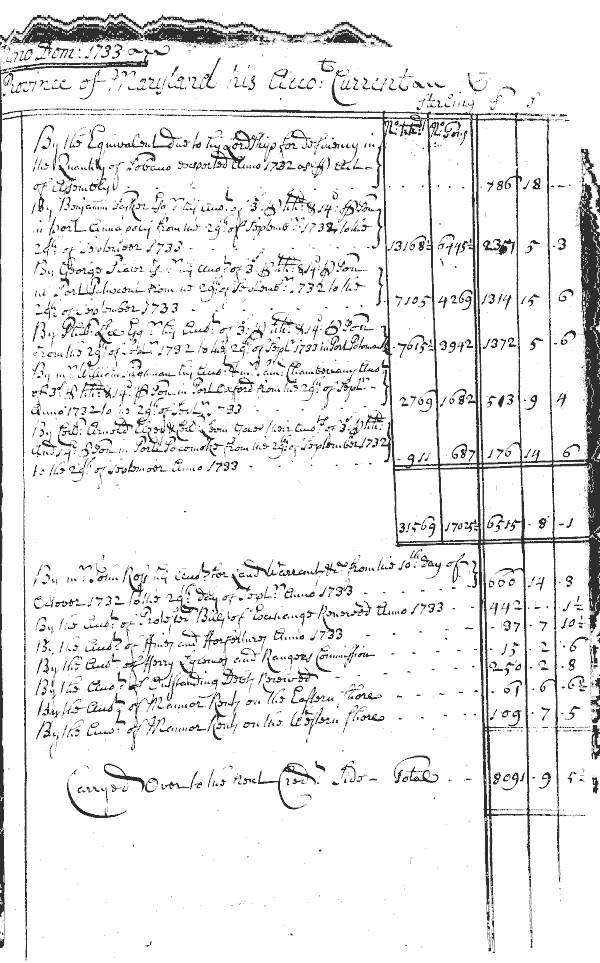 Anno Dom: 1733
Province of Maryland his Acco.t Current
Sterling £ s
N.o Hhds N.o Tons
By the Equivalent due to his Lordship for deficiency in
the Quantity of Tobacco exported Anno 1732 as Act
of Assembly - - - 786 18 -
By Benjamin Tasker Esq.r his Acco.t of 3.d Hhd & 14.d Ton
in Port Annapolis from the 29.th of Septemb.r 1732 to the
29.th of September 1733 - 13168½ 6445½ 2351 5 3
By George Plater Esq.r his Acco.t of 3.d Hhd & 14.d Ton
in Port Patuxent from the 29.th of Septemb.r 1732 to the
29.th of September 1733 - - 7105 4269 1314 15 6
By Phil: Lee Esq.r his Acco.t of 3.d Hhd & 14.d Ton
from the 29.th of Sept.r 1732 to the 29.th of Sept.r 1733 in Port Potomack 7615½ 3942 1372 5 6
By m.r William his Acco.t & m.r Sam: Chamberlain Acco.t
of 3.d Hhd & 14.d Ton in Port Oxford from the 29.th of Sept.r
Anno 1732 to the 29.th of Sept.r 1733 - - 2769 1682 513 9 4
By Coll: Arnold Elzey & their Acco.t of 3.d Hhd
and 14.d Ton in Port Pocomoke from the 29.th of September 1732
to the 29.th of September Anno 1733 - - - 911 687 176 14 6
31569 17025½ 6515 8 1
By m.r John Ross his Acco.t for Land Warrants &c from the 10.th day of
October 1732 to the 29.th day of Sept.r Anno 1733 - - 660 14 8
By the Acco.t of Protested Bills of Exchange Renewed Anno 1733 - - 442 - 1½
By the Acco.t of Fines and Forfeitures Anno 1733 - - - 37 7 10½
By the Acco.t of Ferry Lycences and Rangers Commission - - - 15 2 6
By the Acco.t of Outstanding Debts Received - - - 250 2 8
By the Acco.t of Mannor Rents on the Eastern Shore - - - 61 6 6½
By the Acco.t of Mannor Rents on the Western Shore - - - 109 7 5
Carryed Over to the next Cred.r Side - Total - - 8091 9 5½